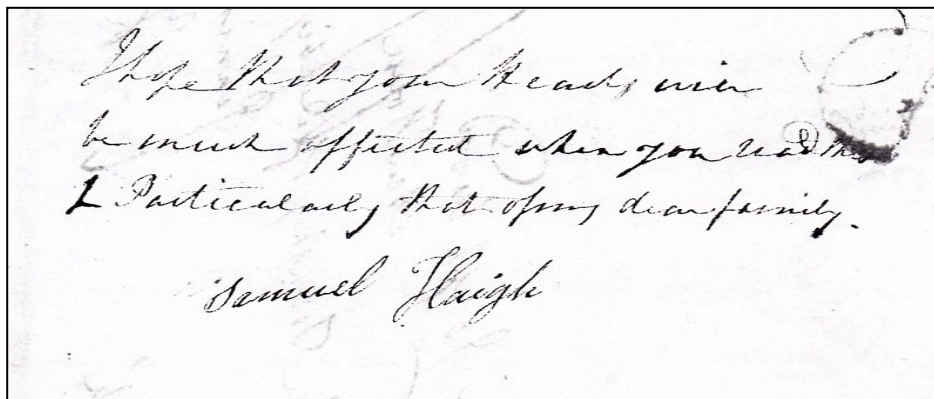 I hope that your Hearts will
be much affected when you read this
& Particularly that of my dear family.
Samuel Haigh